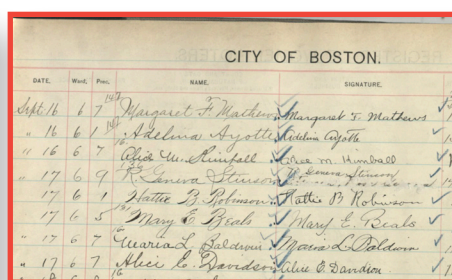 CITY OF BOSTON.
DATE. Ward. Prec. NAME. SIGNATURE.
Sept. 16 6 7 Margaret F. Mathews Margaret F. Mathews
" 16 6 1 Adelina Ayotte Adelina Ayotte
" 16 6 7 Alice M. Kimball Alice M. Kimball
" 17 6 9 Geneva Stinson Geneva Stinson
17 6 1 Hattie B. Robinson Hattie B Robinson
" 17 6 5 Mary E Beals Mary E. Beals
" 17 6 7 Maria L. Baldwin Maria L. Baldwin
" 17 6 7 Alice E. Davidson Alice E. Davidson